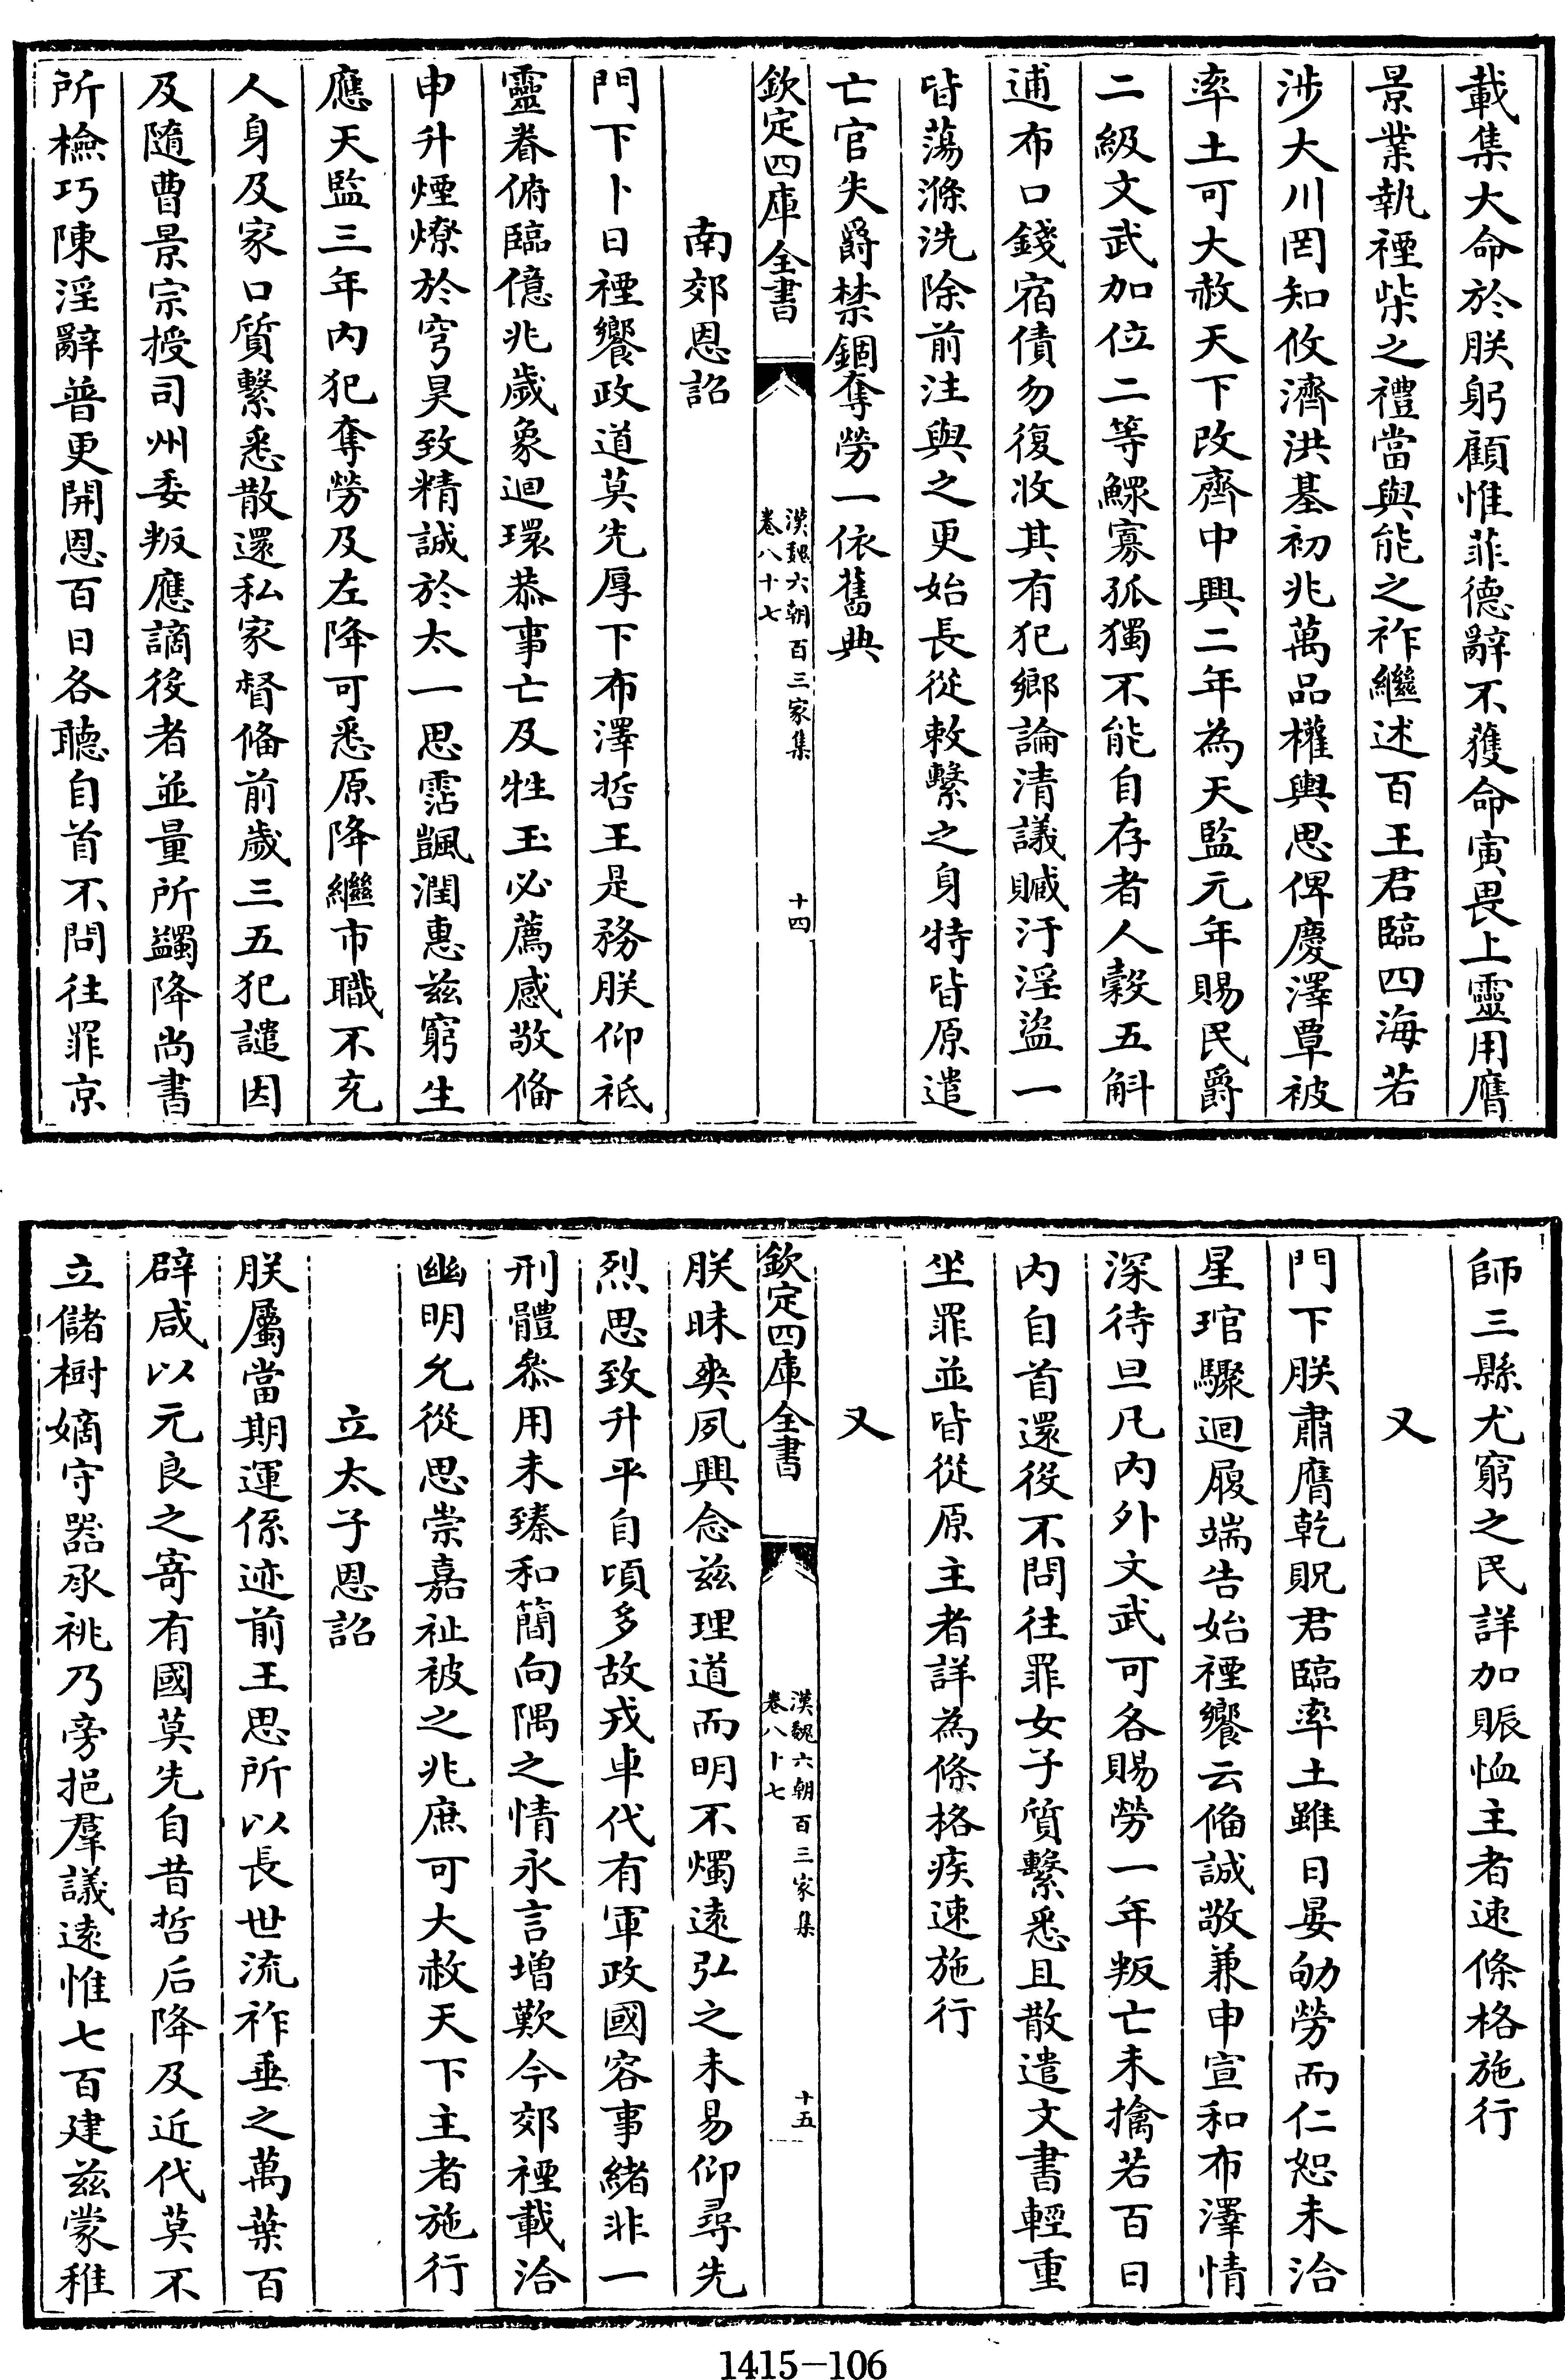 載集大命於朕躬顧惟菲德辭不獲命寅畏上靈用膺
景業執禋柴之禮當與能之祚繼述百王君臨四海若
涉大川罔知攸濟洪基初兆萬品權輿思俾慶澤覃被
率土可大赦天下改齊中興二年為天監元年賜民爵
二級文武加位二等鰥寡孤獨不能自存者人穀五斛
逋布口錢宿債勿復收其有犯鄉論清議贓汙淫盜一
皆蕩滌洗除前注與之更始長從敕繫之身特皆原遣
亡官失爵禁錮奪勞一依舊典
欽定四庫全書
漢魏六朝百三家集
卷八十七
十四
南郊恩詔
門下卜日禋饗政道莫先厚下布澤哲王是務朕仰祗
靈眷俯臨億兆歲象迴環恭事亡及牲玉必薦感敬備
申升煙燎於穹昊致精誠於太一思霑颽潤惠茲窮生
應天監三年內犯奪勞及左降可悉原降繼市職不充
人身及家口質繫悉散還私家督備前歲三五犯譴因
及隨曹景宗授司州委叛應謫役者並量所蠲降尚書
所檢巧陳淫辭普更開恩百日各聽自首不問往罪京
師三縣尤窮之民詳加賑恤主者速條格施行
又
門下朕肅膺乾貺君臨率土雖日晏劬勞而仁恕未洽
星琯驟迴履端告始禋饗云備誠敬兼申宣和布澤情
深待旦凡內外文武可各賜勞一年叛亡未擒若百日
內自首還役不問往罪女子質繫悉且散遣文書輕重
坐罪並皆從原主者詳為條格疾速施行
又
欽定四庫全書
漢魏六朝百三家集
卷八十七
十五
朕昧爽夙興念茲理道而明不燭遠弘之未易仰尋先
烈思致升平自頃多故戎車代有軍政國容事緒非一
刑體叅用未臻和簡向隅之情永言增歎今郊禋載洽
幽明允從思崇嘉祉被之兆庶可大赦天下主者施行
立太子恩詔
朕屬當期運係迹前王思所以長世流祚垂之萬葉百
辟咸以元良之寄有國莫先自昔哲后降及近代莫不
立儲樹嫡守器承祧乃旁挹羣議遠惟七百建茲蒙稚
1415-106